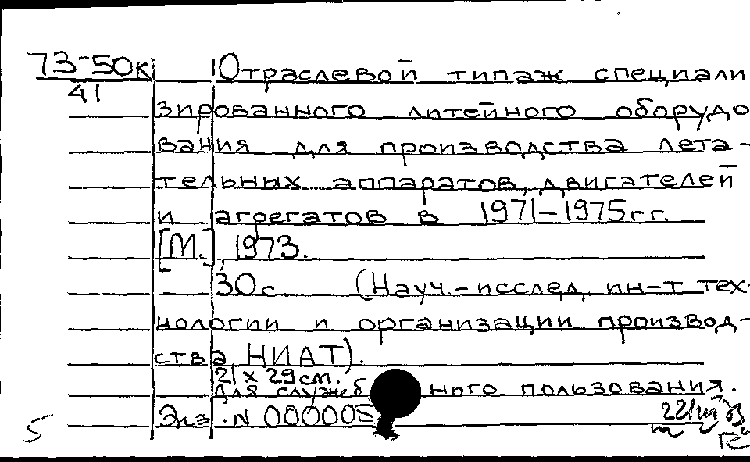 73-50к Отраслевой типаж специали
41
зированного литейного оборудо
вания для производства лета-
тельных аппаратов, двигателей
и агрегатов в 1971-1975гг.
[М.], 1973.
30с. (Науч.-исслед. ин-т тех-
нологии и организации производ-
ства НИАТ).
21 x 29 см.
Для служеб ного пользования.
Экз. N 000005
5